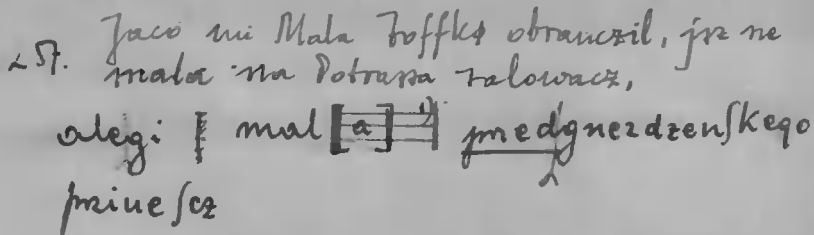 257. Jaco mi Mala Zoffkø obranczil, jsz ne
mala na Potrassa zalowacz,
alegi mal [a] 1) pred gnezdzenſkego
priueſcz